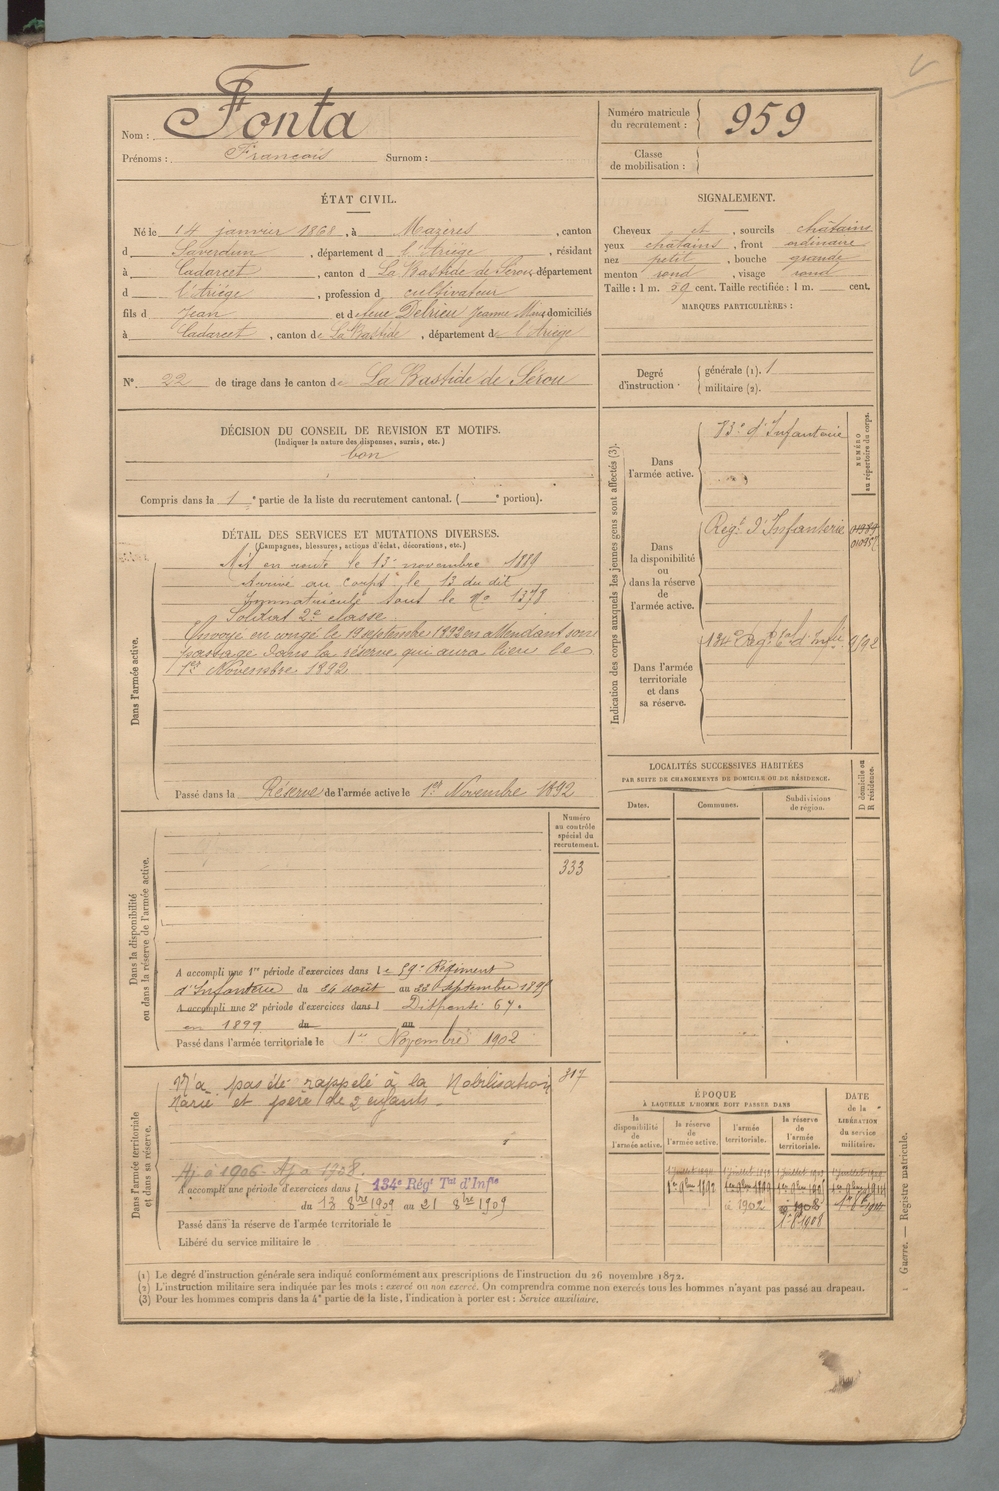 Nom : Fonta
Prénoms : François Surnom :
Numéro matricule du recrutement : 959
Classe de mobilisation :
ÉTAT CIVIL.
Né le 14 janvier 1868, à Mazères, canton
d Saverdun, département d l'Ariège, résidant
à Cadarcet, canton d La Bastide de Sérou, département
d l'Ariège, profession d cultivateur
fils d Jean et d feue Delrieu Jeanne domiciliés
à Cadarcet, canton de La Bastide, département de l'Ariège
N° 22 de tirage dans le canton de La Bastide de Sérou
SIGNALEMENT.
Cheveux et, sourcils châtains
yeux châtains, front ordinaire
nez petit, bouche grande
menton rond, visage rond
Taille : 1 m. 59 cent. Taille rectifiée : 1 m. cent.
MARQUES PARTICULIÈRES :
Degré d'instruction.
générale (1). 1
militaire (2).
DÉCISION DU CONSEIL DE REVISION ET MOTIFS.
(Indiquer la nature des dispenses, sursis, etc.)
bon
Compris dans la 1e partie de la liste du recrutement cantonal. ( e portion).
DÉTAIL DES SERVICES ET MUTATIONS DIVERSES.
(Campagnes, blessures, actions d'éclat, décorations, etc.)
Dans l'armée active.
Mis en route le 13 novembre 1889
Arrivé au corps le 13 du dit
Immatriculé sous le No 1378
Soldat 2e classe.
Envoyé en congé le 19 septembre 1892 en attendant son
passage dans la réserve qui aura lieu le
1er Novembre 1892
Passé dans la Réserve de l'armée active le 1er Novembre 1892
Indication des corps auxquels les jeunes gens sont affectés (3).
NUMÉRO au répertoire du corps.
Dans l'armée active.
83e d'Infanterie
Dans la disponibilité ou dans la réserve de l'armée active.
Regt d'Infanterie
Dans l'armée territoriale et dans sa réserve.
134e Regt tal d'Infie
LOCALITÉS SUCCESSIVES HABITÉES
PAR SUITE DE CHANGEMENTS DE DOMICILE OU DE RÉSIDENCE.
Dates.
Communes.
Subdivisions de région.
D domicile ou R résidence.
Dans la disponibilité ou dans la réserve de l'armée active.
Numéro au contrôle spécial du recrutement.
333
A accompli une 1re période d'exercices dans le 59e Régiment
d'Infanterie du 24 août au septembre
A accompli une 2e période d'exercices dans l Dispensé
en 1899 du au
Passé dans l'armée territoriale le 1er Novembre 1902
Dans l'armée territoriale et dans sa réserve.
817
N'a pas été rappelé à la Mobilisation
Marié et père de 2 enfants.
Aj à 1906 Aj à 1908.
A accompli une période d'exercices dans l 134e Régt Tal d'Infie
du 13 8bre 1909 au 21 8bre 1909
Passé dans la réserve de l'armée territoriale le
Libéré du service militaire le
ÉPOQUE
À LAQUELLE L'HOMME DOIT PASSER DANS
la disponibilité de l'armée active.
la réserve de l'armée active.
l'armée territoriale.
la réserve de l'armée territoriale.
DATE de la LIBÉRATION du service militaire.
1er 9bre 1892
1902
1908
(1) Le degré d'instruction générale sera indiqué conformément aux prescriptions de l'instruction du 26 novembre 1872.
(2) L'instruction militaire sera indiquée par les mots : exercé ou non exercé. On comprendra comme non exercés tous les hommes n'ayant pas passé au drapeau.
(3) Pour les hommes compris dans la 4e partie de la liste, l'indication à porter est : Service auxiliaire.
Guerre. — Registre matricule.